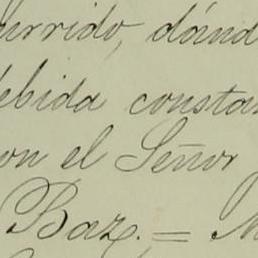 urrido, dánd
ebida constan
on el Señor
Baz. = M